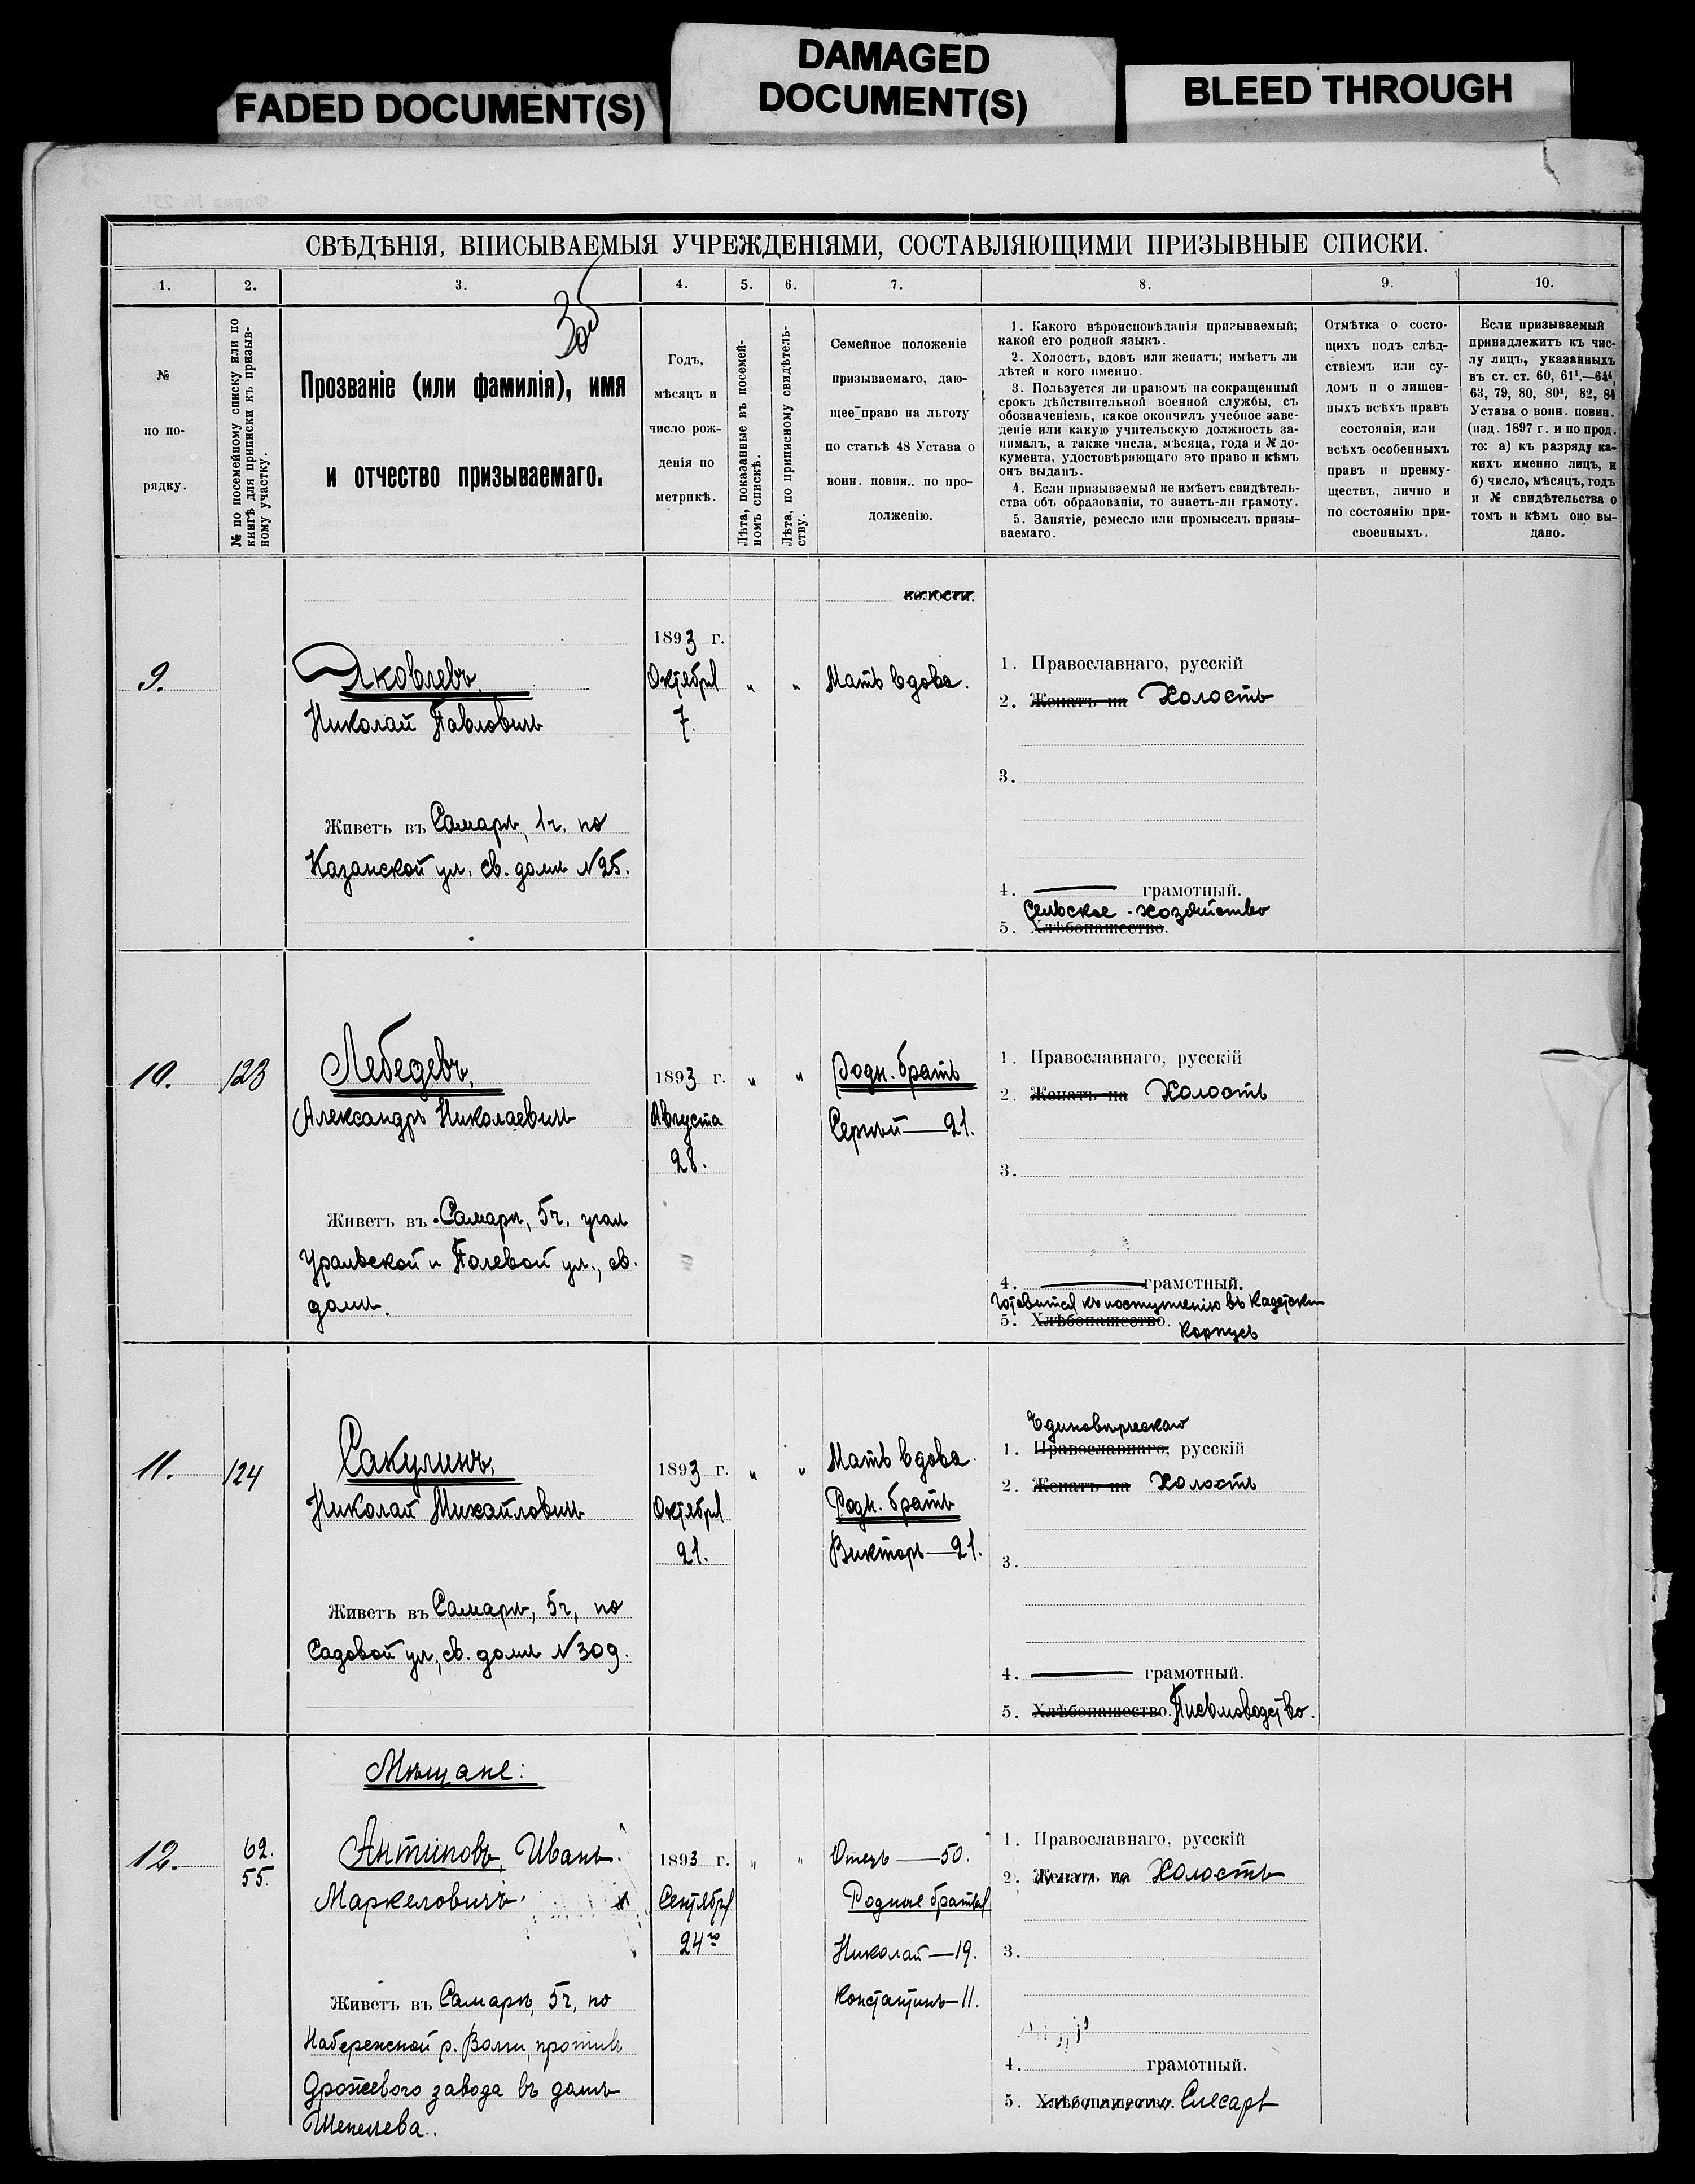 FADED DOCUMENT(S)
DAMAGED
DOCUMENT(S)
BLEED THROUGH
СВѢДѢНІЯ, ВПИСЫВАЕМЫЯ УЧРЕЖДЕНІЯМИ, СОСТАВЛЯЮЩИМИ ПРИЗЫВНЫЕ СПИСКИ.
1. 2. 3. 4. 5. 6. 7. 8. 9. 10.
№
по по-
рядку.
№ по посемейному списку или по
книгѣ для приписки къ призыв-
ному участку.
Прозваніе (или фамилія), имя
и отчество призываемаго.
Годъ,
мѣсяцъ и
число рож-
денія по
метрикѣ.
Лѣта, показанные въ посемей-
номъ спискѣ.
Лѣта, по приписному свидѣтель-
ству.
Семейное положеніе
призываемаго, даю-
щее право на льготу
по статьѣ 48 Устава о
воин. повин., по про-
долженію.
1. Какого вѣроисповѣданія призываемый;
какой его родной языкъ.
2. Холостъ, вдовъ или женатъ; имѣетъ ли
дѣтей и кого именно.
3. Пользуется ли правомъ на сокращенный
срокъ дѣйствительной военной службы, съ
обозначеніемъ, какое окончилъ учебное заве-
деніе или какую учительскую должность за-
нималъ, а также числа, мѣсяца, года и № до-
кумента, удостовѣряющаго это право и кѣмъ
онъ выданъ.
4. Если призываемый не имѣетъ свидѣтель-
ства объ образованіи, то знаетъ-ли грамоту.
5. Занятіе, ремесло или промыселъ призы-
ваемаго.
Отмѣтка о состо-
щихъ подъ слѣд-
ствіемъ или су-
домъ и о лишен-
ныхъ всѣхъ правъ
состоянія, или
всѣхъ особенныхъ
правъ и преиму-
ществъ, лично и
по состоянію при-
своенныхъ.
Если призываемый
принадлежитъ къ чис-
лу лицъ, указанныхъ
въ ст. ст. 60, 61¹.—64⁴,
63, 79, 80, 80¹, 82, 84
Устава о воин. повин.
(изд. 1897 г. и по прод.
то: а) къ разряду ка-
кихъ именно лицъ, и
б) число, мѣсяцъ, годъ
и № свидѣтельства о
томъ и кѣмъ оно вы-
дано.
волости.
9.
Яковлевъ
Николай Павловичъ
Живетъ въ Самарѣ, 1ч. по
Казанской ул. св. домъ №25.
1893 г.
Октября
7.
" "
Мать вдова.
1. Православнаго, русскій
2. Женатъ на Холостъ
3.
4. грамотный.
Сельское-хозяйство
5. Хлѣбопашество.
10. 123
Лебедевъ,
Александръ Николаевичъ
Живетъ въ Самарѣ, 5ч. уголъ
Уральской и Полевой ул., св.
домъ.
1893 г.
Августа
28.
" "
Родн. братъ
Сергѣй—21.
1. Православнаго, русскій
2. Женатъ на Холостъ
3.
4. грамотный.
Готовится къ поступленію въ Кадетскій
5. Хлѣбопашество.
Корпусъ
11. 124
Сакулинъ,
Николай Михайловичъ
Живетъ въ Самарѣ, 5ч, по
Садовой ул, св. домъ №309.
1893 г.
Октября
21.
" "
Мать вдова.
Родн. братъ
Викторъ—21.
Единовѣрческаго
1. Православнаго, русскій
2. Женатъ на Холостъ
3.
4. грамотный.
5. Хлѣбопашество. Письмоводство.
Мѣщане:
12. 62.
55.
Антиповъ, Иванъ
Маркеловичъ
Живетъ въ Самарѣ, 5ч, по
Набережной р. Волги, противъ
Дрожжевого завода въ домѣ
Шепелева.
1893 г.
Сентября
24го
" "
Отецъ—50.
Родные братья
Николай—19.
Константинъ—11.
1. Православнаго, русскій
2. Женатъ на Холостъ
3.
4. грамотный.
5. Хлѣбопашество. Слесарь